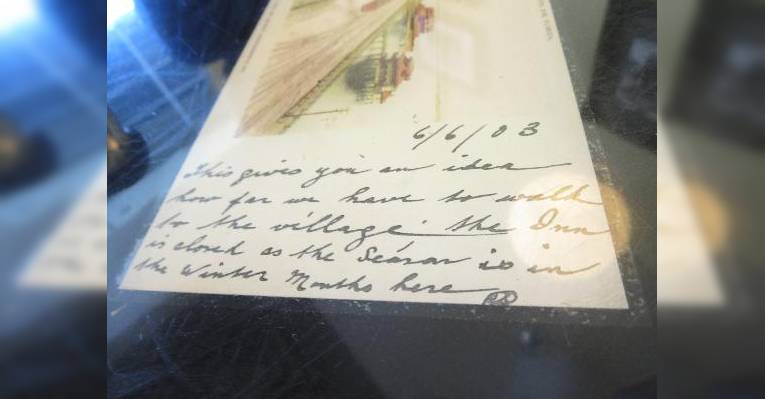 6/6/03
This gives you an idea
how far we have to walk
to the village. the Inn
is closed as the Season is in
the Winter Months here